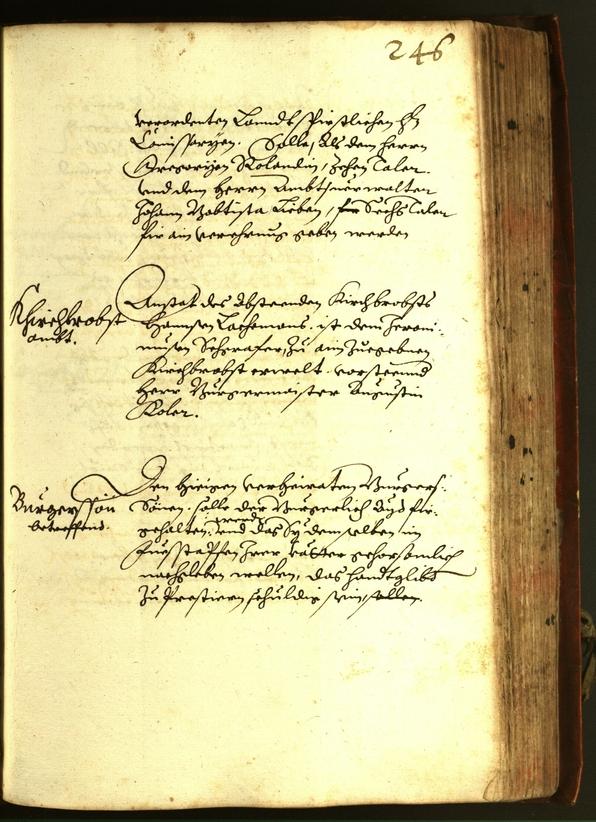 246
verordenten Lanndtsfürstlichen Hn
Comissaryen. Solle, als dem Herrn
Gregorien Rolandin, zehen Taler.
und dem Herrn Ambtsverwalter
Johann Babtista Lieben, für Sechs Taler
für ain verehrung geben werden
Khirchbrobst
ambt.
Anstat des absteenden Kirchbrobsts
Hannsen Lachemans. ist dem Jeroni-
musen Schrafer, zu ain zuegebnen
Kirchbrobst erwelt. vorsteennd
Herr Burgermaister Augustin
Koler.
Burgerssön
betreffend.
Den hieigen verheiraten Burgers-
Sönen. solle der Burgerlich Ayd für-
gehalten, und das Sy demselben im
Fuesstapfen Irer vätter gehorsamlich
nachgleben wellen, das handtglibt
zu Prestiern schuldig sein sollen.